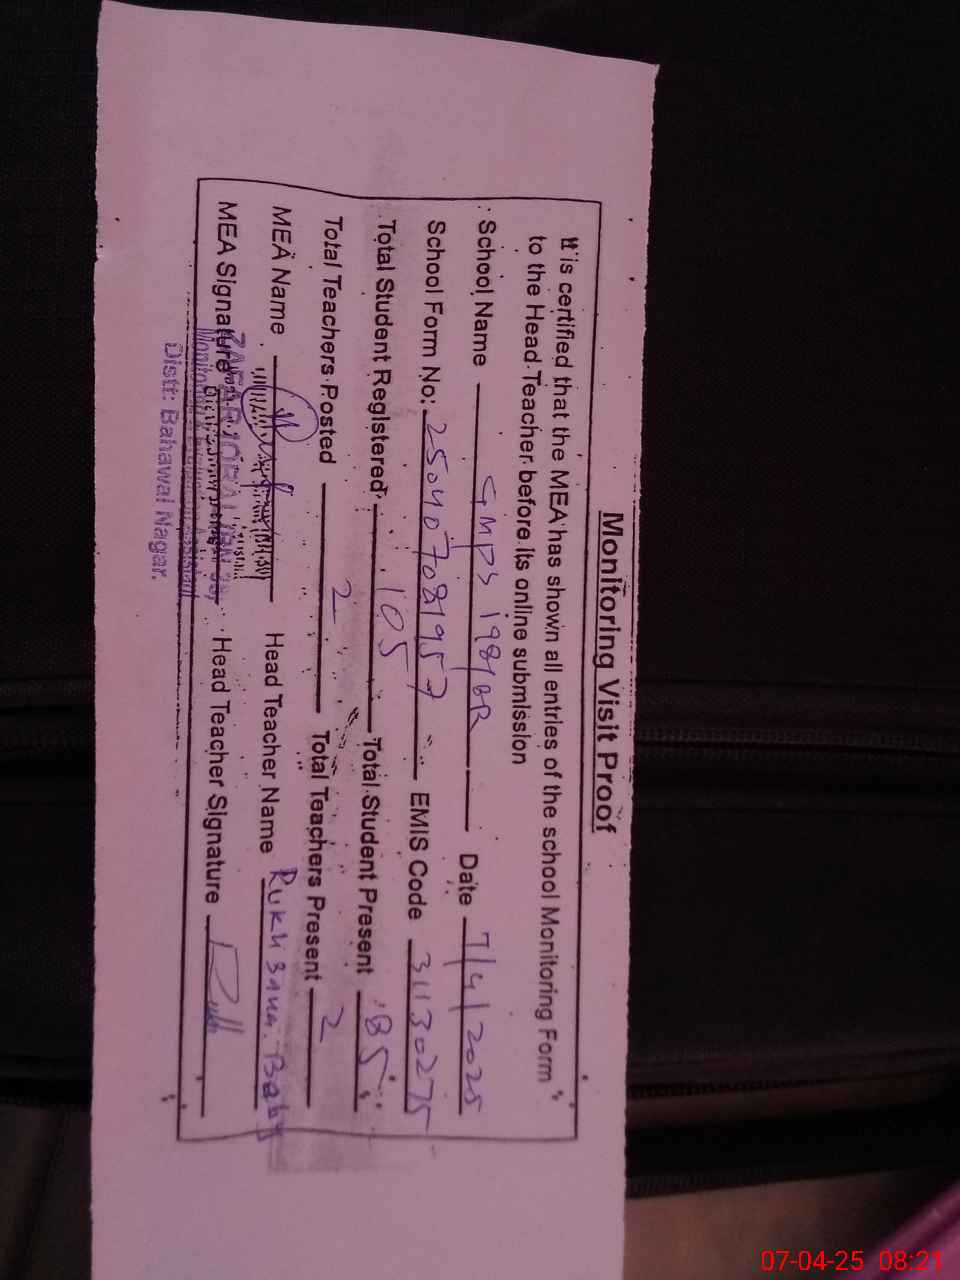 Monitoring Visit Proof
It is certified that the MEA has shown all entries of the school Monitoring Form
to the Head Teacher before its online submission
School Name GMPS 198/BR Date 7/4/2025
School Form No: 250407081957 EMIS Code 31130275
Total Student Registered 105 Total Student Present 85
Total Teachers Posted 2 Total Teachers Present 2
MEA Name Head Teacher Name Rukhsana Baby
MEA Signature Head Teacher Signature
Distt: Bahawal Nagar.
07-04-25 08:21